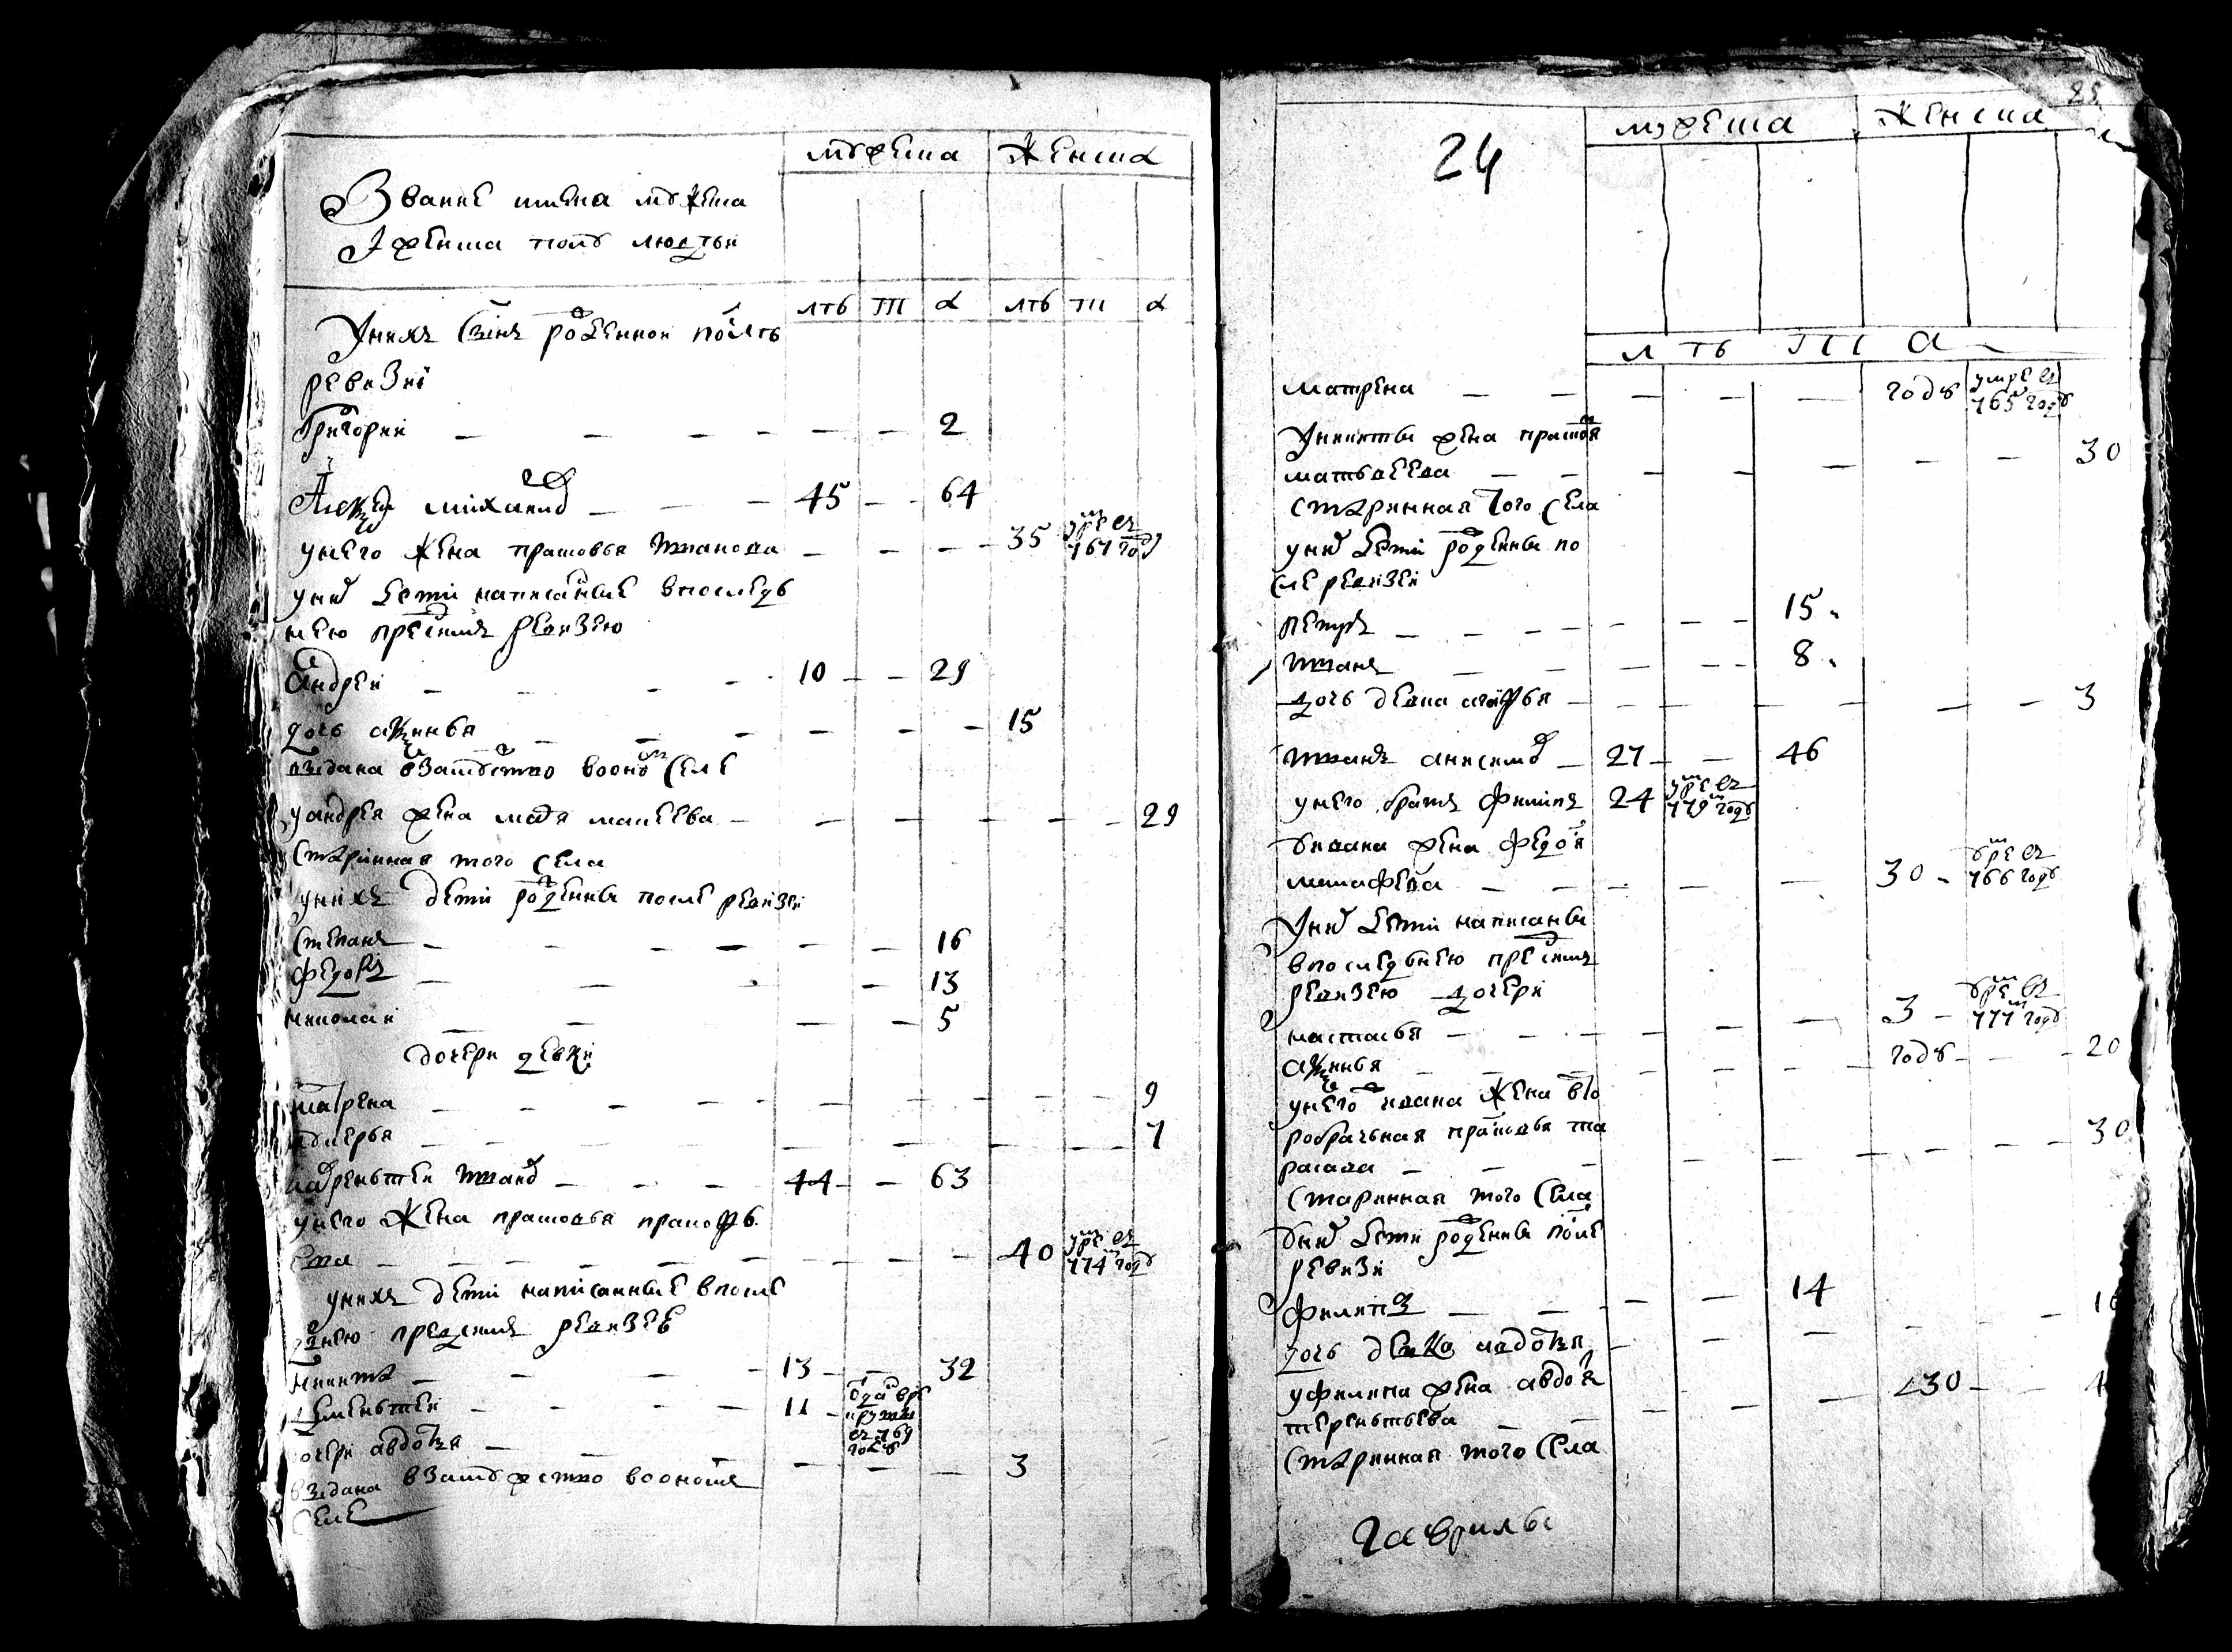 Звание имена мужеска
I женска полу людеи
мужеска женска
лтъ пп а лтъ пп а
Уних сынъ рожденнои после
ревизиi
Григореи — — — — — — 2
Алексеи михаилов — — — 45 — — 64
унего жена прасковья иванова — — — — 35 умре въ 767 году
уних дети написанные впоследъ
нею пред симъ ревизию
Андреи — — — 10 — — 29
дочь аксинья — — — — — — 15
выдана взамужство воономъ селе
уандрея жена марья матвеева — — — — — — 29
старинная того села
унихъ дети рожденны после ревизеи
степанъ — — — — — — 16
федоръ — — — 13
николаи — — — — 5
дочери девки
матрена — — — — — — — — — 9
лукерья — — — — — — — 7
лаврентеи иванов — — — 44 — — 63
унего жена прасковья прокофь
ева — — — — — — — — 40 умре въ 774 году
унихъ дети написанные впосле
днею пред симъ ревизею
никита — — — — 13 — — 32
дементеи — — — — 11 — отдан в рекруты въ 769 году
дочери авдотья — — — — — — 3
выдана взамужество воономъ
селе
25
24
мужеска женска
лтъ пп а
матрена — — — — — году умре въ 765 году
Уникиты жена прасковя
матвеева — — — — — — — 30
старинная того села
уних дети рожденны по
сле ревизеи
петръ — — — — — — — 15
иванъ — — — — — 8
дочь девка агафья — — — — — — — 3
иванъ анисимов — 27 — — 46
унего братъ филипъ 24 умре въ 779 году
уивана жена федося
тимофеева — — — — — 30 — умре въ 766 году
Уних дети написаны
впоследнею пред симъ
ревизею дочери
настасья — — — — — — 3 — умре въ 777 году
аксинья — — — — — году — — — 20
унего ивана жена вто
робрачьная прасковья та
расова — — — — — — — — 30
старинная того села
уних дети рожденны после
ревизи
филипъ — — — — 14
дочь девка авдотья — — — — — 1
уфилипа жена авдотя — — 30 — — 4
терентьева — — — —
старинная того села
гаврилы